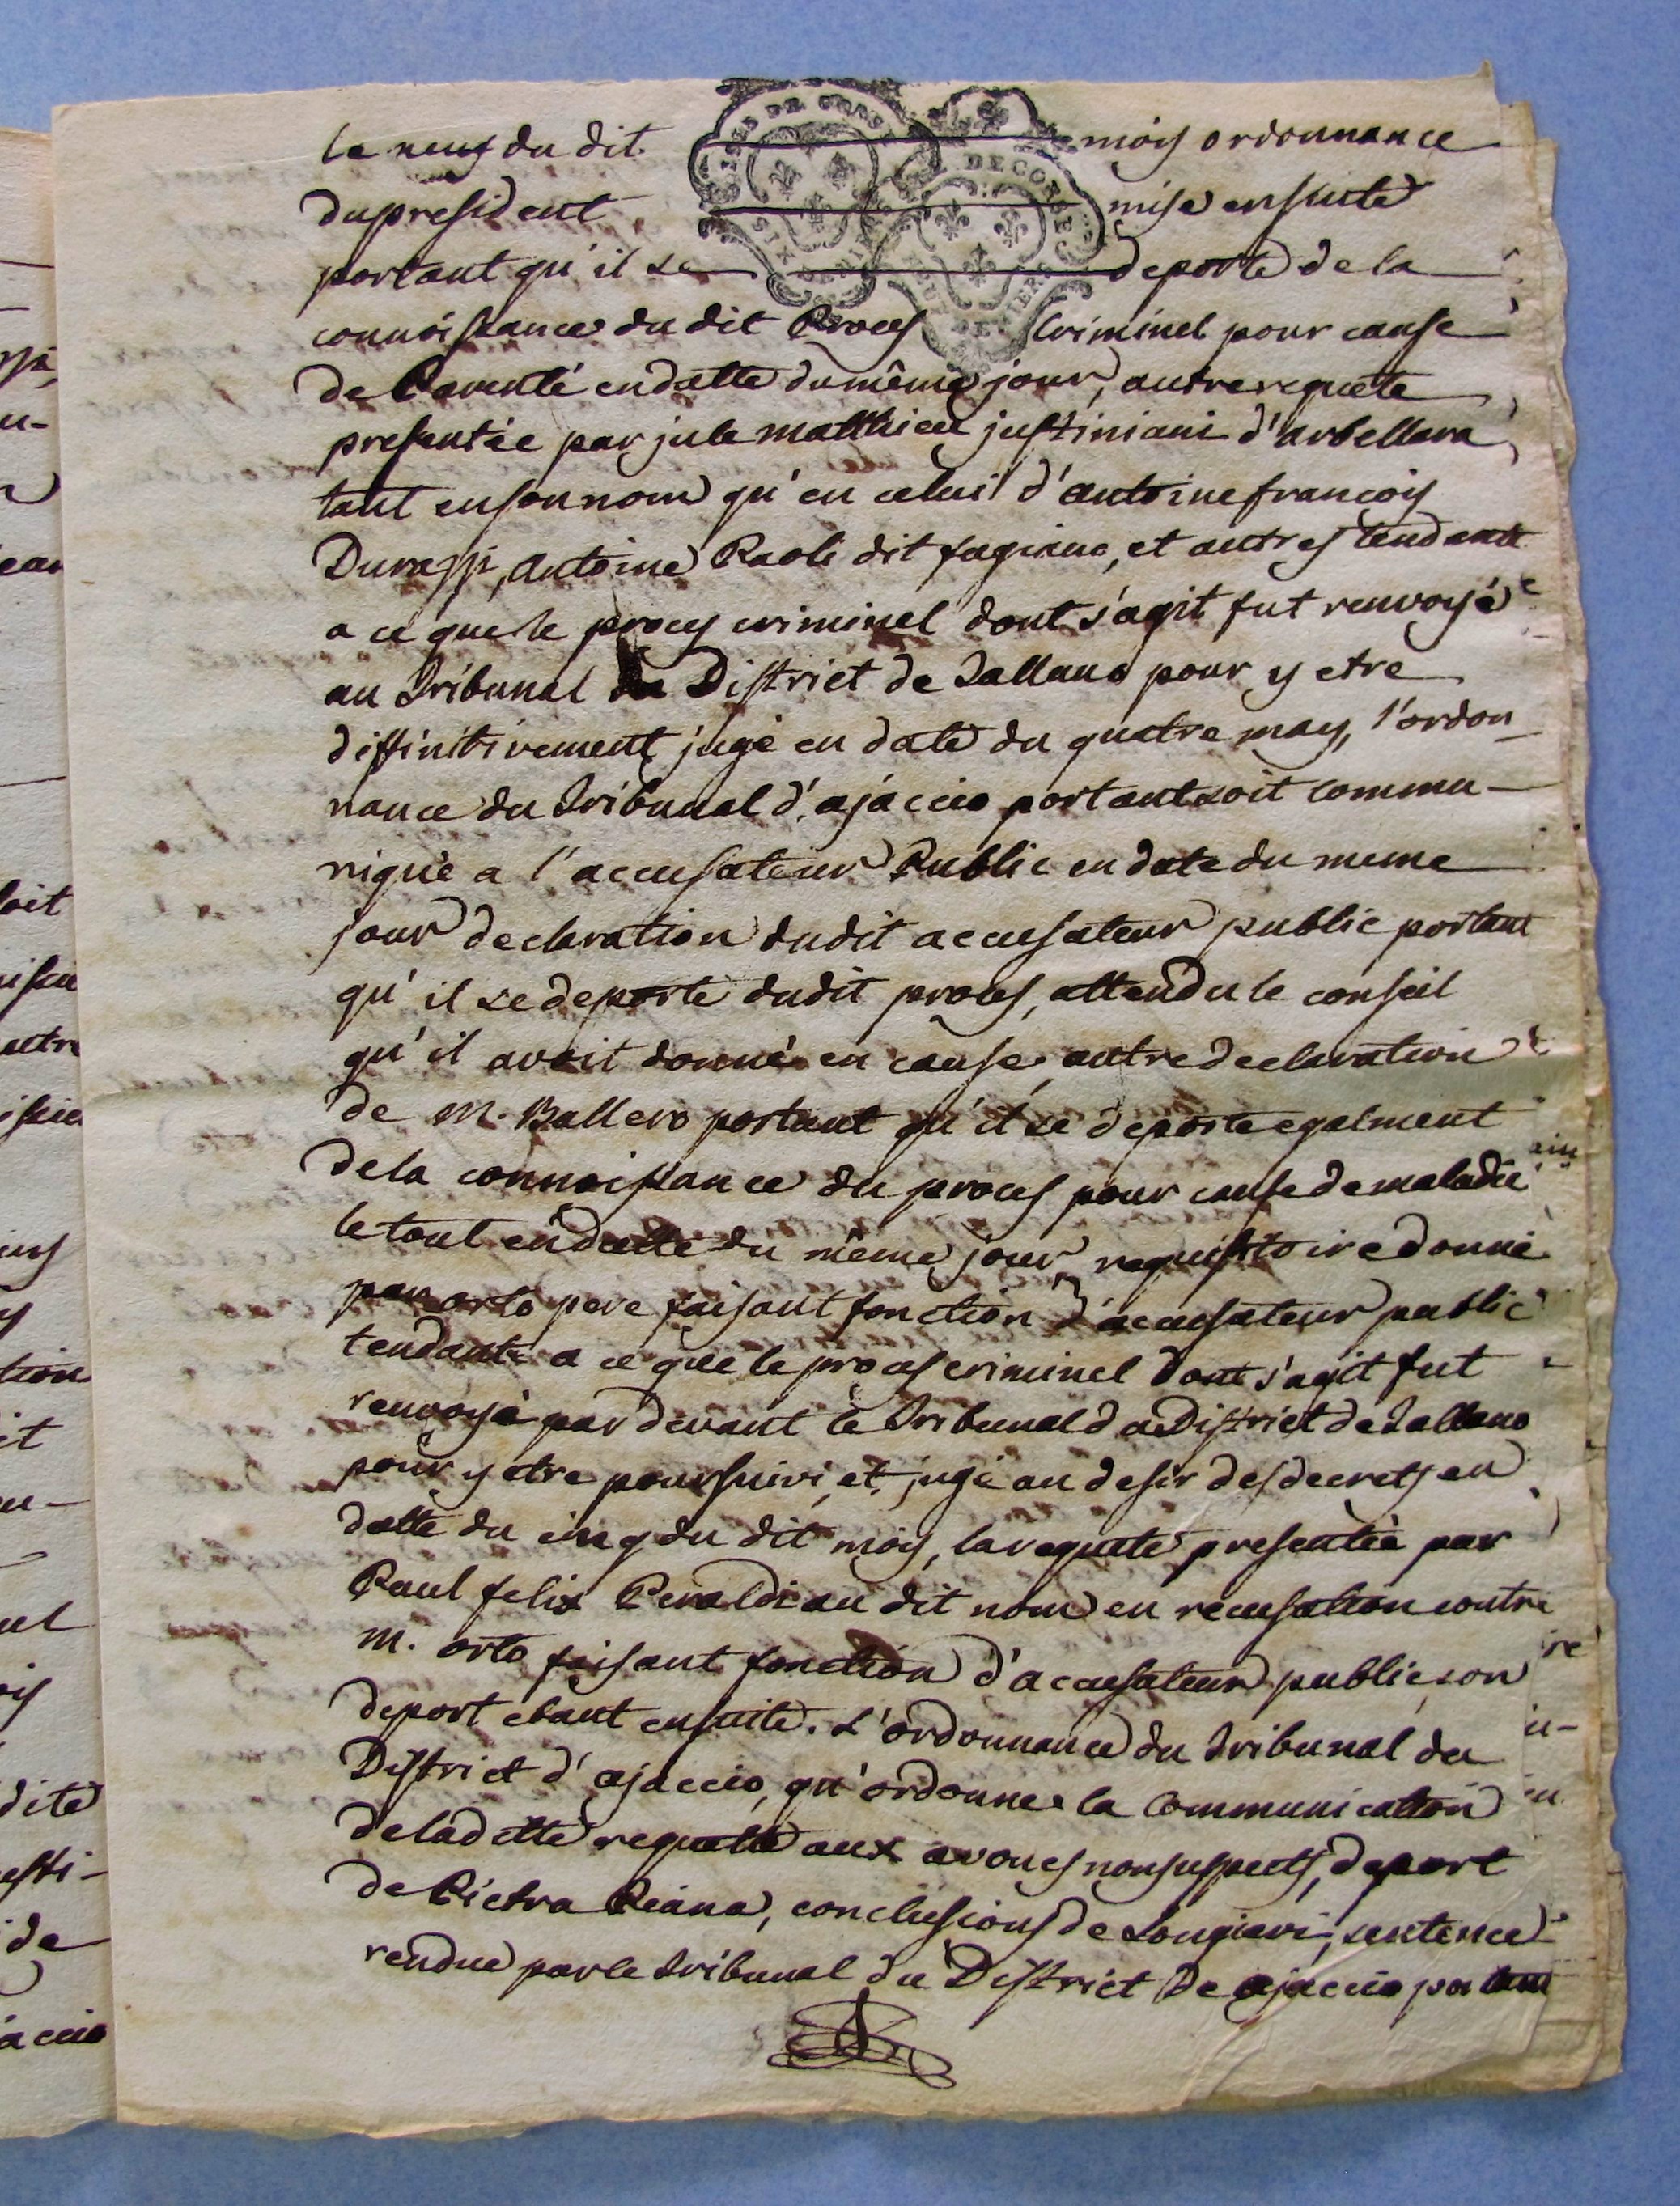 le neuf du dit mois ordonnance
du president mise ensuite
portant qu'il se deporte de la
connoissance du dit Procès Criminel pour cause
de Parenté en datte du même jour, autre requete
presentée par jule matthieu justiniani d'arbellara
tant en son nom qu'en celui d'antoine françois
Durazzi, antoine Paoli dit fagiano, et autres tendante
a ce que le proces criminel dont s'agit fut renvoyé
au Tribunal du District de Tallano pour y etre
diffinitivement jugé en date du quatre may, l'ordon-
nance du Tribunal d'ajaccio portant soit commu-
niqué a l'accusateur Public en date du meme
jour declaration dudit accusateur public portant
qu'il se deporte dudit procès, attendu le conseil
qu'il avoit donné en cause, autre declaration
de M. Ballero portant qu'il se deporte egalment
de la connoissance du proces pour cause de maladie
le tout en datte du même jour, requisitoire donné
par orto pere faisant fonction d'accusateur public
tendante a ce que le proces criminel dont s'agit fut
renvoyé par devant le Tribunal du District de Tallano
pour y etre poursuivi, et jugé au desir des decrets en
datte du cinq du dit mois, la requete presentée par
Paul felix Peraldi au dit nom en recusation contre
M. orto faisant fonction d'accusateur public, son
deport etant ensuite. L'ordonnance du Tribunal du
District d'ajaccio, qu'ordonne la Communication
de la dette requette aux avoués non suspects, deport
de Pietra Piana, conclusions de Longiavi, sentence
rendue par le Tribunal du District de ajaccio portant